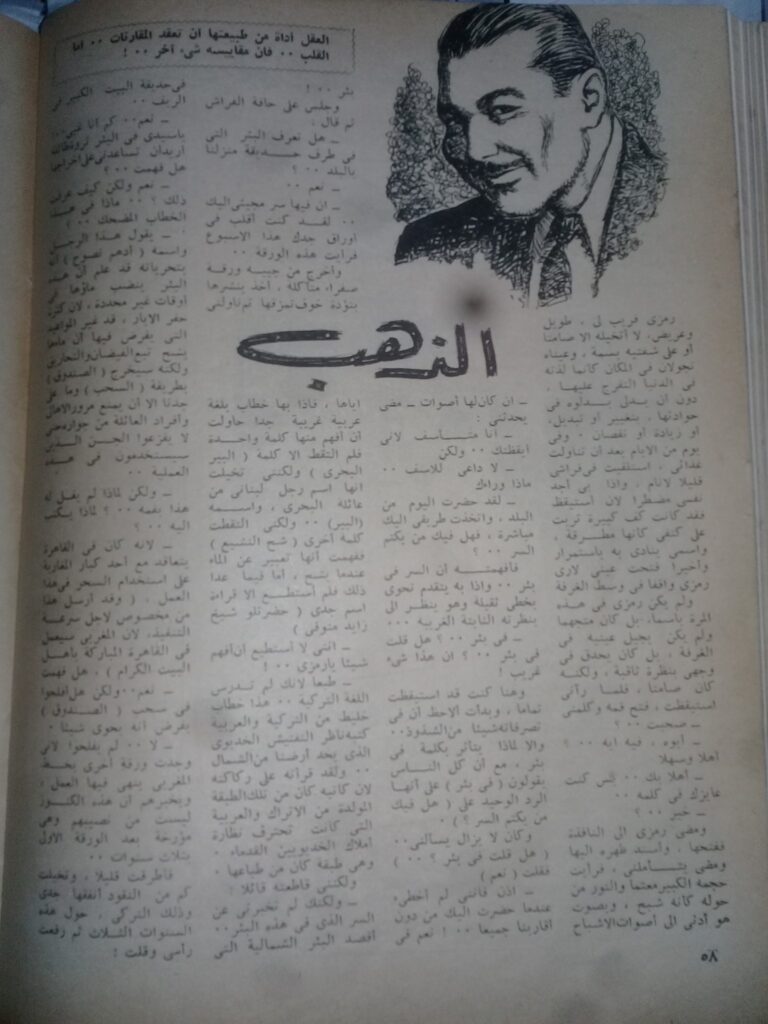 العقل أداة من طبيعتها أن تعقد المقارنات ٠٠ أما
القلب ٠٠ فان مقاييسه شيء آخر ٠٠ !
الذهب
رمزى قريب لى ، طويل
وعريض، لا أتخيله الا صامتا
أو على شفتيه بسمة ، وعيناه
تجولان في المكان كأنما لذته
في الدنيا التفرج عليها ،
دون أن يدلى بدلوه في
حوادثها ، بتغيير أو تبديل،
أو زيادة أو نقصان ٠ وفي
يوم من الايام بعد أن تناولت
غدائى ، استلقيت في فراشي
قليلا لانام ، واذا بى أجد
نفسى مضطرا لان أستيقظ
فقد كانت كف كبيرة تربت
على كتفى كأنها مطرقة ،
واسمى ينادى به باستمرار
وأخيرا فتحت عينى لارى
رمزى واقفا في وسط الغرفة
ولم يكن رمزى في هذه
المرة باسما، بل كان متجهما
ولم يكن يجيل عينيه في
الغرفة ، بل كان يحدق في
وجهى بنظرة ثاقبة ، ولكنه
كان صامتا ، فلما رآنى
استيقظت ، فتح فمه وكلمنى
ـ صحيت ٠٠ ؟
ـ أيوه ، فيه ايه ٠٠ ؟
أهلا وسهلا
ـ أهلا بك ٠٠ بس كنت
عايزك في كلمه ٠٠
ـ خير ٠٠ ؟
ومضى رمزى الى النافذة
ففتحها ، وأسند ظهره اليها
ومضى يتأملنى ، فرأيت
حجمه الكبير معتما والنور من
حوله كأنه شبح ، وبصوت
هو أدنى الى أصوات الاشباح
ـ ان كان لها أصوات ـ مضى
يحدثنى :
ـ أنا متأسف لانى
أيقظتك ٠٠ ولكن
ـ لا داعى للاسف ٠٠
ماذا وراءك
ـ لقد حضرت اليوم من
البلد ، واتخذت طريقى اليك
مباشرة ، فهل فيك من يكتم
السر ٠٠ ؟
فأفهمته أن السر في
بئر ٠٠ واذا به يتقدم نحوى
بخطى ثقيلة وهو ينظر الى
بنظرته الثابتة الغريبة ٠٠٠
ـ في بئر ٠٠ ؟ هل قلت
في بئر ٠٠ ؟ ان هذا شيء
غريب !
وهنا كنت قد استيقظت
تماما ، وبدأت ألاحظ أن في
تصرفاته شيئا من الشذوذ ٠٠
والا لماذا يتأثر بكلمة في
بئر ، مع أن كل الناس
يقولون ( في بئر ) على أنها
الرد الوحيد على ( هل فيك
من يكتم السر ؟ ) ٠
وكان لا يزال يسألنى ٠٠
( هل قلت في بئر ؟ ٠٠ )
فقلت ( نعم )
ـ اذن فاننى لم أخطىء
عندما حضرت اليك من دون
أقاربنا جميعا ٠٠ ! نعم في
بئر ٠٠ !
وجلس على حافة الفراش
ثم قال :
ـ هل تعرف البئر التى
في طرف حديقة منزلنا
بالبلد ٠٠ ؟
ـ نعم ٠٠
ـ ان فيها سر مجيئى اليك
٠٠ لقد كنت أقلب في
أوراق جدك هذا الاسبوع
فرأيت هذه الورقة ٠٠
وأخرج من جيبه ورقة
صفراء متآكلة ، أخذ ينشرها
بتؤدة خوف تمزقها ثم ناولنى
اياها ، فاذا بها خطاب بلغة
عربية غريبة جدا حاولت
أن أفهم منها كلمة واحدة
فلم ألتقط الا كلمة ( البير
البحرى ) ولكننى تخيلت
انها اسم رجل لبنانى من
عائلة البحرى ، واسمه
( ألبير ) ٠٠ ولكنى التقطت
كلمة أخرى ( شح النشيع )
ففهمت أنها تعبير عن الماء
عندما يشح ، أما فيما عدا
ذلك فلم أستطع الا قراءة
اسم جدى ( حضرتلو شيخ
زايد منوفى )
ـ اننى لا أستطيع أن أفهم
شيئا يا رمزى ٠٠ !
ـ طبعا لانك لم تدرس
اللغة التركية ٠٠ هذا خطاب
خليط من التركية والعربية
كتبه ناظر التفتيش الخديوى
الذى يحد أرضنا من الشمال
٠٠ ولقد قرأته على ركاكته
لان كاتبه كان من تلك الطبقة
المولدة من الاتراك والعربية
التى كانت تحترف نظارة
أملاك الخديويين القدماء ٠
وهى طبقة كان من طباعها ٠
ولكننى قاطعته قائلا :
ـ ولكنك لم تخبرنى عن
السر الذى في هذه البئر ٠٠
أقصد البئر الشمالية التى
في حديقة البيت الكبير في
الريف ٠٠
ـ نعم ٠٠ كم أنا غبى ٠٠
يا سيدى في البئر ثروة طائلة
أريد أن تساعدنى على اخراجها
هل فهمت ٠٠ ؟
ـ نعم ولكن كيف عرفت
ذلك ؟ ٠٠ ماذا في هذا
الخطاب المضحك ٠٠ ؟
ـ يقول هذا الرجل
واسمه ( أدهم نصوح ) أن
بتحرياته قد علم أن هذه
البئر ينضب ماؤها في
أوقات غير محددة ، لان كثرة
حفر الآبار ، قد غير المواعيد
التى يفرض فيها أن ماءها
يشح تبع الفيضان والتحاريق
ولكنه سيخرج ( الصندوق )
بطريقة ( السحب ) وما على
جدنا الا أن يمنع مرور الاهالى
وأفراد العائلة من جواره حتى
لا يفزعوا الجن الذين
سيستخدمون في هذه
العملية ٠٠
ـ ولكن لماذا لم يقل له
هذا بفمه ٠٠ ؟ لماذا يكتب
اليه ٠٠ ؟
ـ لانه كان في القاهرة
يتعاقد مع أحد كبار المغاربة
على استخدام السحر في هذا
العمل ، ( وقد أرسل هذا
من مخصوص لاجل سرعة
التنفيذ، لان المغربى سيعمل
في القاهرة المباركة بأهل
البيت الكرام ) ٠ هل فهمت
ـ نعم ٠٠ ولكن هل أفلحوا
في سحب ( الصندوق )
بفرض أنه يحوى شيئا ٠
ـ لا ٠٠ لم يفلحوا لانى
وجدت ورقة أخرى بخط
المغربى ينهى فيها العمل ،
ويخبرهم أن هذه الكنوز
ليست من نصيبهم وهى
مؤرخة بعد الورقة الاولى
بثلاث سنوات ٠٠
فأطرقت قليلا ، وتخيلت
كم من النقود أنفقها جدى
وذلك التركى ، حول هذه
السنوات الثلاث ثم رفعت
رأسى وقلت :
٧٥